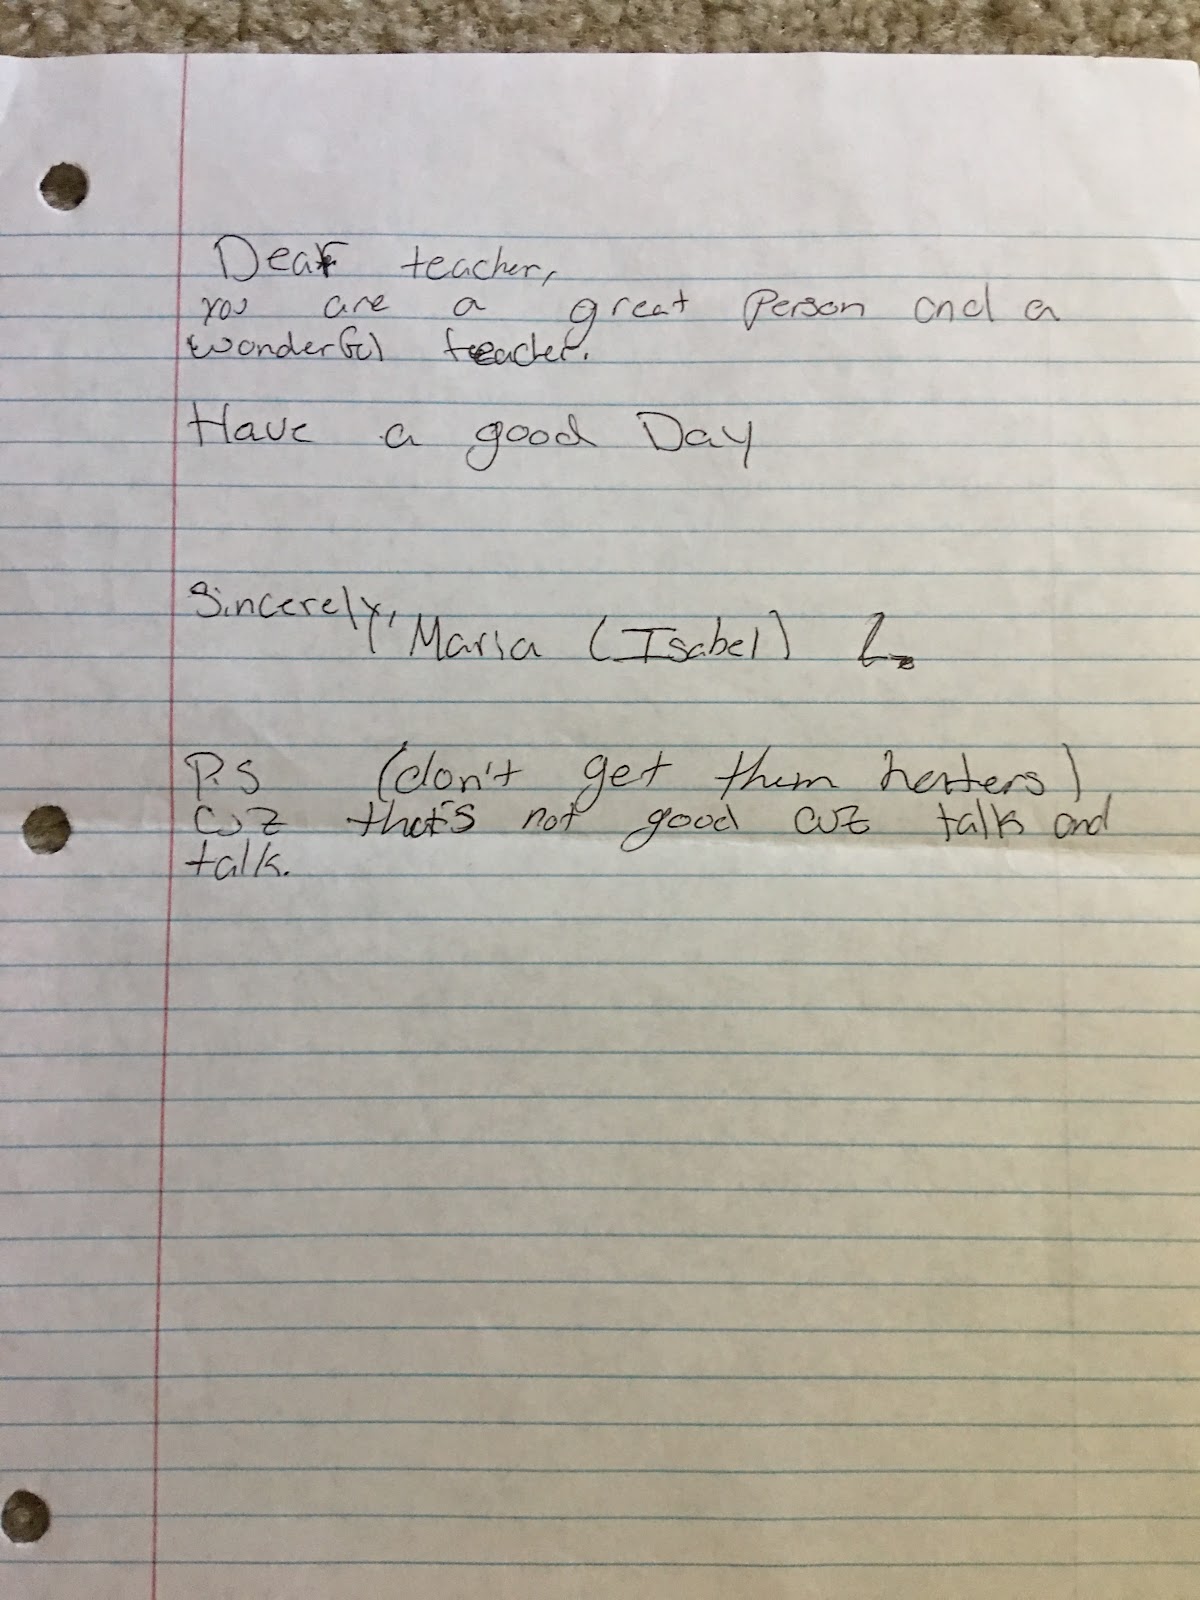 Dear teacher,
you are a great Person and a
wonderful teacher.
Have a good Day
Sincerely,
Maria (Isabel) L.
P.S (don't get them hetters)
cuz that's not good cuz talk and
talk.